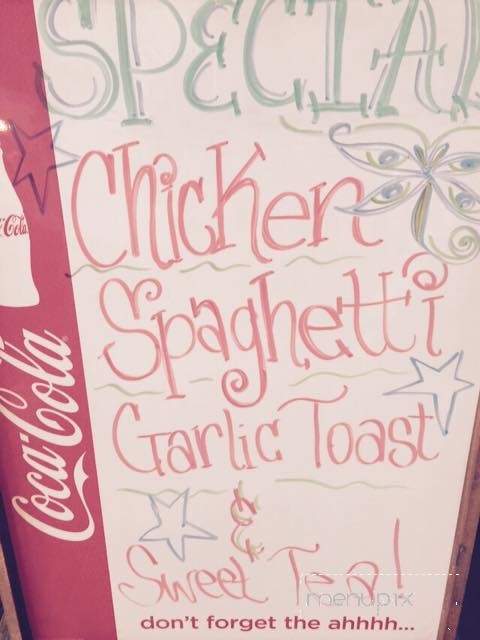 SPECIAL
Chicken
Spaghetti
Garlic Toast
&
Sweet Tea!
don't forget the ahhhh...
Coca-Cola
Coca-Cola
menupix